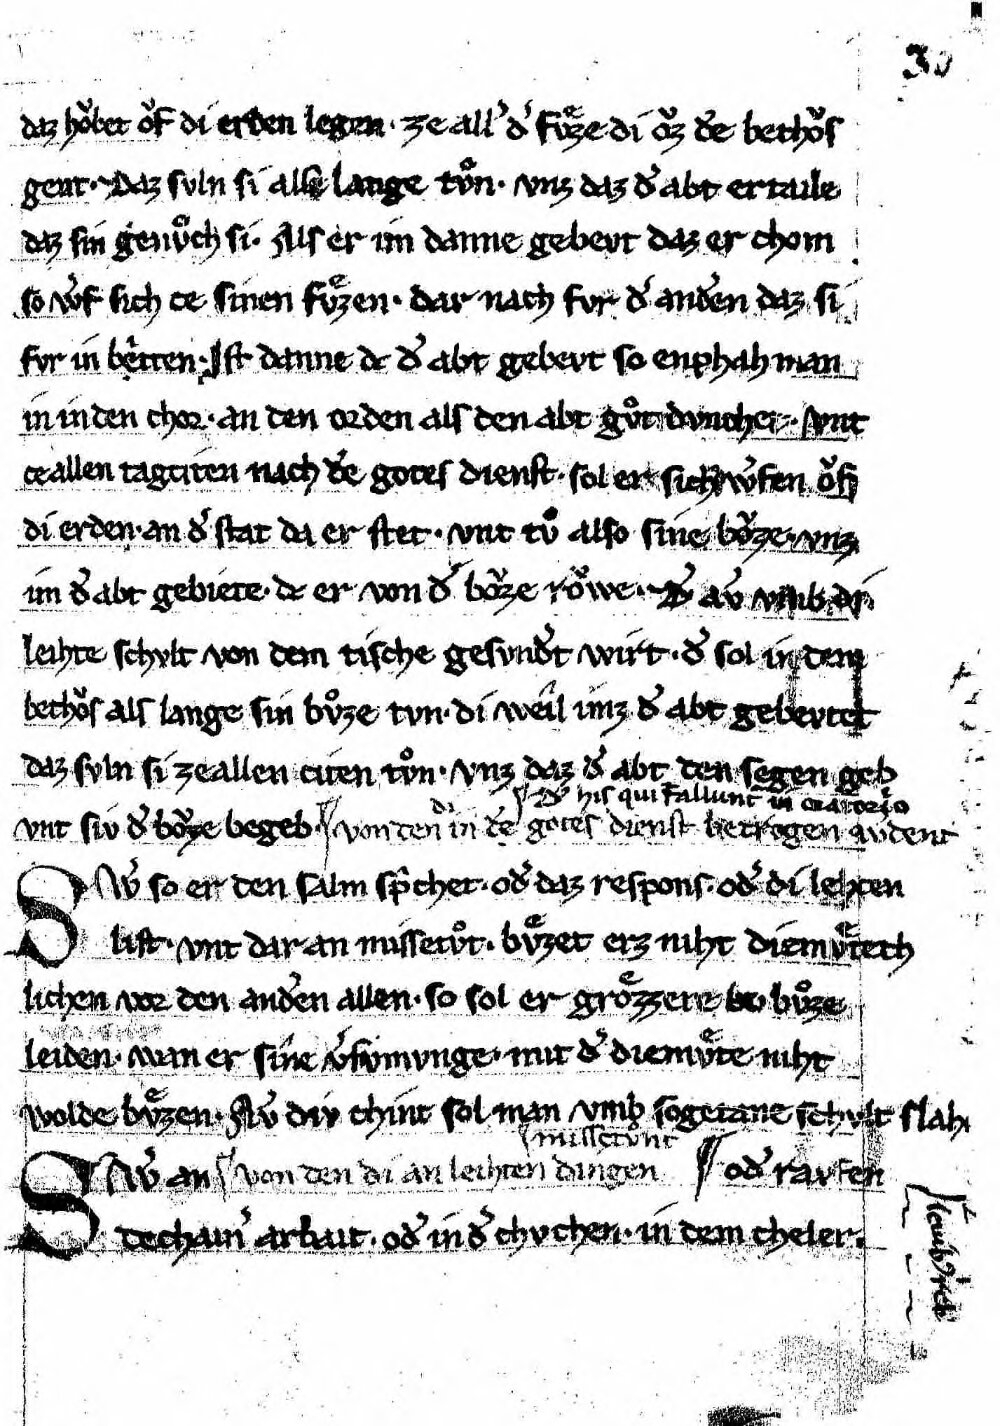 30
daz hǒbet ǒf di erden legen · ze all᾽ d᾽ fv̊ͤze di ǒz d᾽e bethǒs
gent · Daz svln si also lange tv̊n · vnz daz d᾽ abt ertaile
daz sin genv̊ch si · Als er im danne gebevt daz er chom
so w᾽f sich ce sinen fv̊ͤzen · dar nach fvr d᾽ and᾽en daz si
fvr in betten · Ist danne dc d᾽ abt gebevt so enphah man
in in den chor · an den orden als den abt gv̊t dvnchet · vnt
ce allen tagciten nach d᾽e gotes dienst · sol er sich w᾽fen ǒf
di erden · an d᾽ stat da er stet · vnt tv̊ also sine bv̊ze · vnz
im d᾽ abt gebiete · dc er von d᾽ bv̊ze rǒwe · D᾽ av᾽ vmb di
leihte schvlt von dem tische gesvnd᾽t wirt · d᾽ sol in dem
bethǒs als lange sin bv̊ze tvn · di weil imz d᾽ abt gebevtet
daz svln si ze allen citen tv̊n · vnz daz d᾽ abt den segen geb
De his qui fallunt in oratorio
vnt siv d᾽ bv̊ze begeb · von den di in d᾽e gotes dienst betrogen w᾽dent
Sw᾽ so er den salm sp᾽chet · od᾽ daz respons · od᾽ di lehcen
list · vnt dar an missetv̊t · bv̊ͤzet erz niht diemv̊ͤtech
lichen vor den and᾽en allen · so sol er grǒzzere bv̊ze
leiden · wan er sine v᾽svmvnge · mit d᾽ diemv̊ͤte niht
wolde bv̊ͤzen · Av᾽ div chint sol man vmb sogetane schvlt slah
missetvnt
Sw᾽ an von den di an leihten dingen od᾽ ravfen
dechain᾽ arbait · od᾽ in d᾽ chvchen · in dem cheler ·